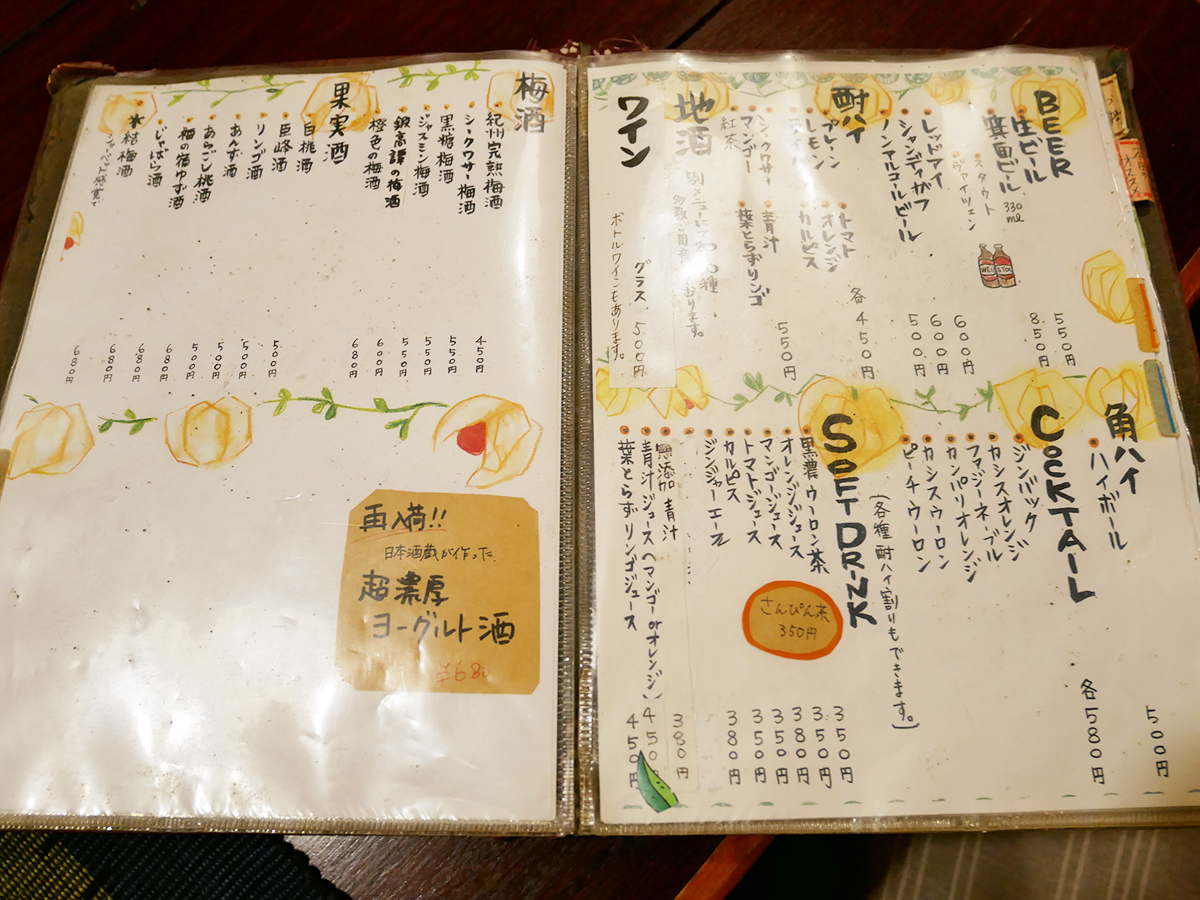 BEER
生ビール 550円
箕面ビール 330ml 850円
スタウト
ヴァイツェン
レッドアイ 600円
シャンディガフ 600円
ノンアルコールビール 500円
酎ハイ 各450円
プレーン
レモン
トマト
オレンジ
カルピス
シークワサー
マンゴー
紅茶
青汁
葉とらずリンゴ
550円
地酒
別メニューにて
ワイン
グラス 500円
ボトルワインもあります。
角ハイ
ハイボール 500円
COCKTAIL 各580円
ジンバック
カシスオレンジ
ファジーネーブル
カンパリオレンジ
カシスウーロン
ピーチウーロン
SOFT DRINK
(各種 酎ハイ割りもできます。)
黒濃ウーロン茶 350円
オレンジジュース 350円
マンゴージュース 380円
トマトジュース 350円
カルピス 350円
ジンジャーエール 380円
無添加 青汁 380円
青汁ジュース(マンゴーorオレンジ) 450円
葉とらずリンゴジュース 450円
さんぴん茶
350円
梅酒
紀州完熟梅酒 450円
シークワサー梅酒 550円
黒糖梅酒 550円
ジャスミン梅酒 550円
鍛高譚の梅酒 600円
橙色の梅酒 680円
果実酒
白桃酒 500円
巨峰酒 500円
リンゴ酒 500円
あんず酒 500円
あらごし桃酒 680円
梅の宿ゆず酒 680円
じゃばら酒 680円
氷結梅酒 680円
シャーベット感覚で
再入荷!!
日本酒蔵が作った
超濃厚
ヨーグルト酒
¥680